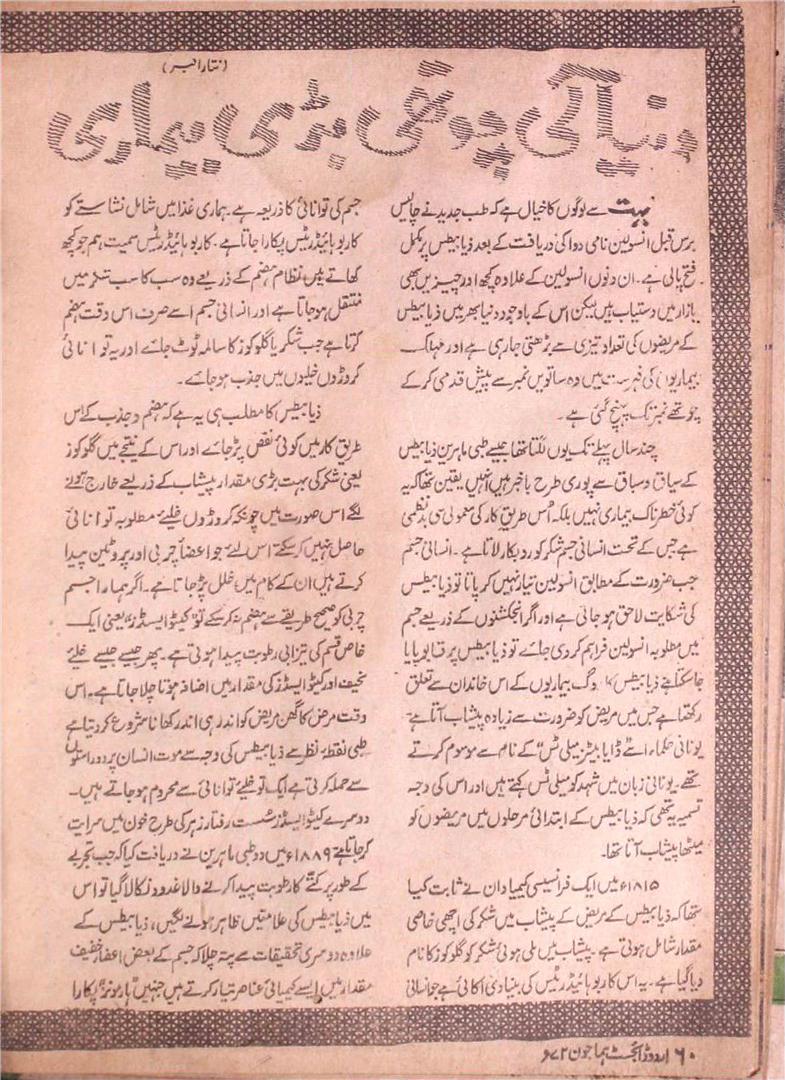 (نثار اکبر)
دنیا کی چوتھی بڑی بیماری
بہت سے لوگوں کا خیال ہے کہ طب جدید نے چالیس
برس قبل انسولین نامی دوا کی دریافت کے بعد ذیابیطس پر مکمل
فتح پالی ہے۔ ان دنوں انسولین کے علاوہ کچھ اور چیزیں بھی
بازار میں دستیاب ہیں لیکن اس کے باوجود دنیا بھر میں ذیابیطس
کے مریضوں کی تعداد تیزی سے بڑھتی جا رہی ہے اور مہلک
بیماریوں کی فہرست میں وہ ساتویں نمبر سے پیش قدمی کر کے
چوتھے نمبر تک پہنچ گئی ہے۔
چند سال پہلے تک یوں لگتا تھا جیسے طبی ماہرین ذیابیطس
کے سیاق و سباق سے پوری طرح باخبر ہیں انہیں یقین تھا کہ یہ
کوئی خطرناک بیماری نہیں بلکہ اُس طریق کار کی معمولی سی بدنظمی
ہے جس کے تحت انسانی جسم شکر کو روبکار لاتا ہے۔ انسانی جسم
جب ضرورت کے مطابق انسولین تیار نہیں کر پاتا تو ذیابیطس
کی شکایت لاحق ہو جاتی ہے اور اگر انجکشنوں کے ذریعے جسم
میں مطلوبہ انسولین فراہم کر دی جائے تو ذیابیطس پر قابو پایا
جا سکتا ہے ذیابیطس کا روگ بیماریوں کے اس خاندان سے تعلق
رکھتا ہے جس میں مریض کو ضرورت سے زیادہ پیشاب آتا ہے
یونانی حکماء اسے ”ڈایابیٹیز میلی ٹس“ کے نام سے موسوم کرتے
تھے۔ یونانی زبان میں شہد کو میلی ٹس کہتے ہیں اور اس کی وجہ
تسمیہ یہ تھی کہ ذیابیطس کے ابتدائی مرحلوں میں مریضوں کو
میٹھا پیشاب آتا تھا۔
۱۸۱۵ء میں ایک فرانسیسی کیمیا دان نے ثابت کیا
تھا کہ ذیابیطس کے مریض کے پیشاب میں شکر کی اچھی خاصی
مقدار شامل ہوتی ہے۔ پیشاب میں ملی ہوئی شکر کو گلوکوز کا نام
دیا گیا ہے۔ یہ اس کاربوہائیڈریٹس کی بنیادی اکائی ہے جو انسانی
جسم کی توانائی کا ذریعہ ہے۔ ہماری غذا میں شامل نشاستے کو
کاربوہائیڈریٹس پکارا جاتا ہے۔ کاربوہائیڈریٹس سمیت ہم جو کچھ
کھاتے ہیں نظام ہضم کے ذریعے وہ سب کا سب شکر میں
منتقل ہو جاتا ہے اور انسانی جسم اسے صرف اس وقت ہضم
کرتا ہے جب شکر یا گلوکوز کا سالمہ ٹوٹ جائے اور یہ توانائی
کروڑوں خلیوں میں جذب ہو جائے۔
ذیابیطس کا مطلب ہی یہ ہے کہ ہضم و جذب کے اس
طریق کار میں کوئی نقص پڑ جائے اور اس کے نتیجے میں گلوکوز
یعنی شکر کی بہت بڑی مقدار پیشاب کے ذریعے خارج ہونے
لگے اس صورت میں چونکہ کروڑوں خلیے مطلوبہ توانائی
حاصل نہیں کر سکتے اس لئے جو اعضا چربی اور پروٹین پیدا
کرتے ہیں ان کے کام میں خلل پڑ جاتا ہے۔ اگر ہمارا جسم
چربی کو صحیح طریقے سے ہضم نہ کر سکے تو ”کیٹو ایسڈز“ یعنی ایک
خاص قسم کی تیزابی رطوبت پیدا ہوتی ہے۔ پھر جیسے جیسے خلئے
نحیف اور کیٹو ایسڈز کی مقدار میں اضافہ ہوتا چلا جاتا ہے۔ اس
وقت مرض کا گھن مریض کو اندر ہی اندر کھانا شروع کر دیتا ہے
طبی نقطۂ نظر سے ذیابیطس کی وجہ سے موت انسان پر دو راستوں
سے حملہ کرتی ہے ایک تو خلیے توانائی سے محروم ہو جاتے ہیں۔
دوسرے کیٹو ایسڈز سُست رفتار زہر کی طرح خون میں سرایت
کر جاتا ہے ۱۸۸۹ء میں دو طبی ماہرین نے دریافت کیا کہ جب تجربے
کے طور پر کتے کا رطوبت پیدا کرنے والا غدود نکالا گیا تو اس
میں ذیابیطس کی علامتیں ظاہر ہونے لگیں، ذیابیطس کے
علاوہ دوسری تحقیقات سے پتہ چلا کہ جسم کے بعض اعضاء خفیف
مقدار میں ایسے کیمیائی عناصر تیار کرتے ہیں جنہیں ”ہارمونز“ پکارا
۶۰ اردو ڈائجسٹ ہما جون ۷۲ء